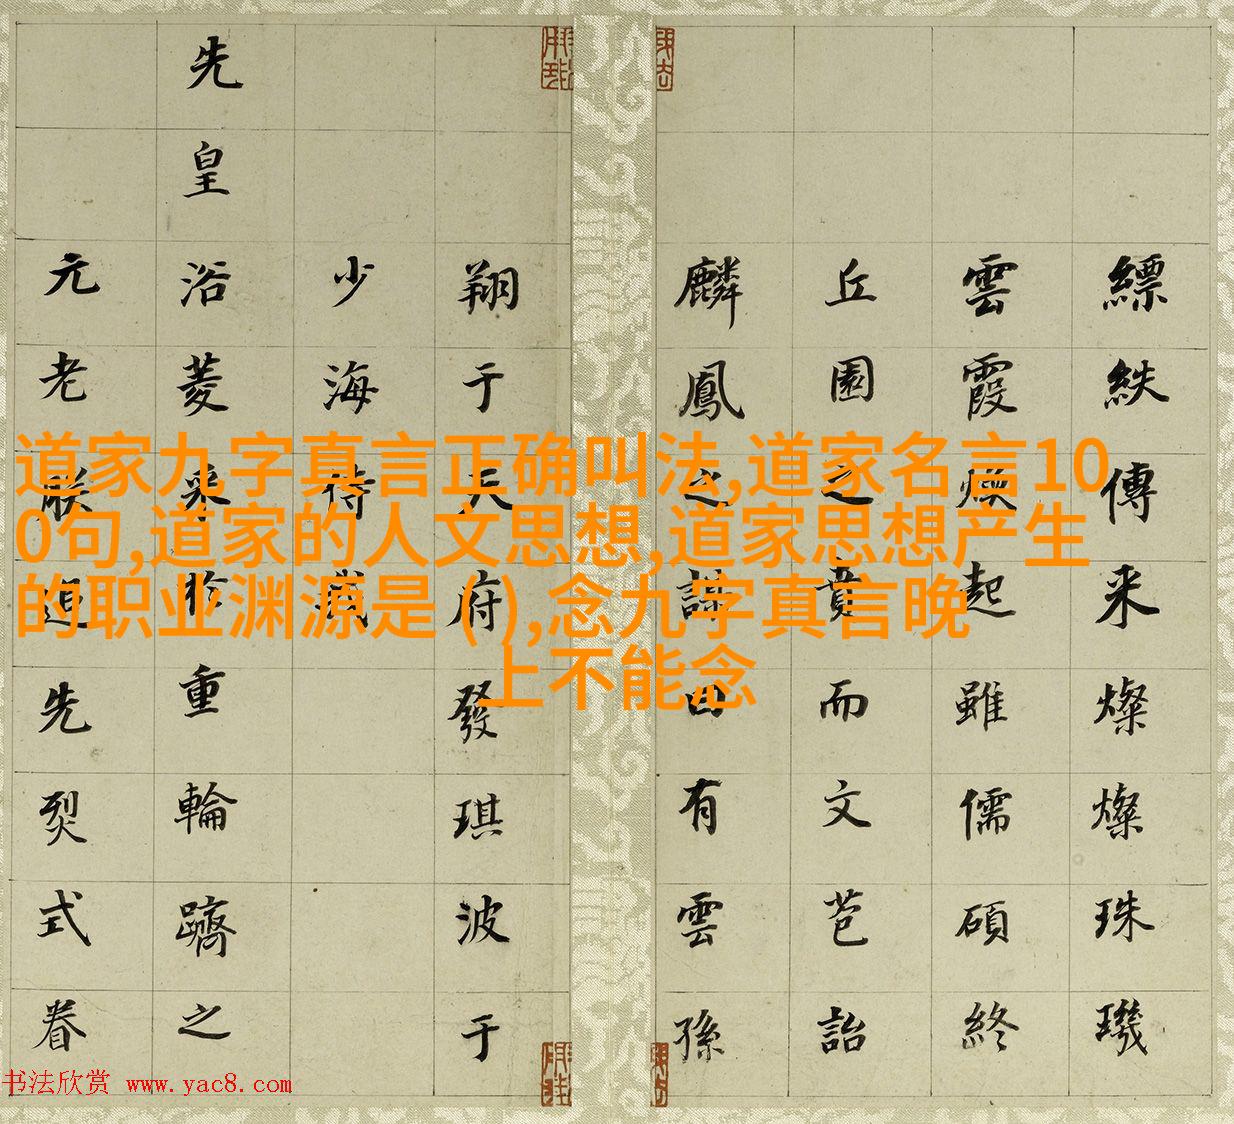 縹紩傳来燦燦珠璣
雲霞煥起雖儒碩終
丘園之賁而文芭詒
麟鳳之曰有雲孫
翔于天府發琪波于
少海
先皇浴菱采重輪躋之
元老先烈式眷
道家九字真言正确叫法,道家名言10
0句,道家的人文思想,道家思想产生
的职业渊源是 ( ),念九字真言晚
上不能念
书法欣赏 www.yac8.com